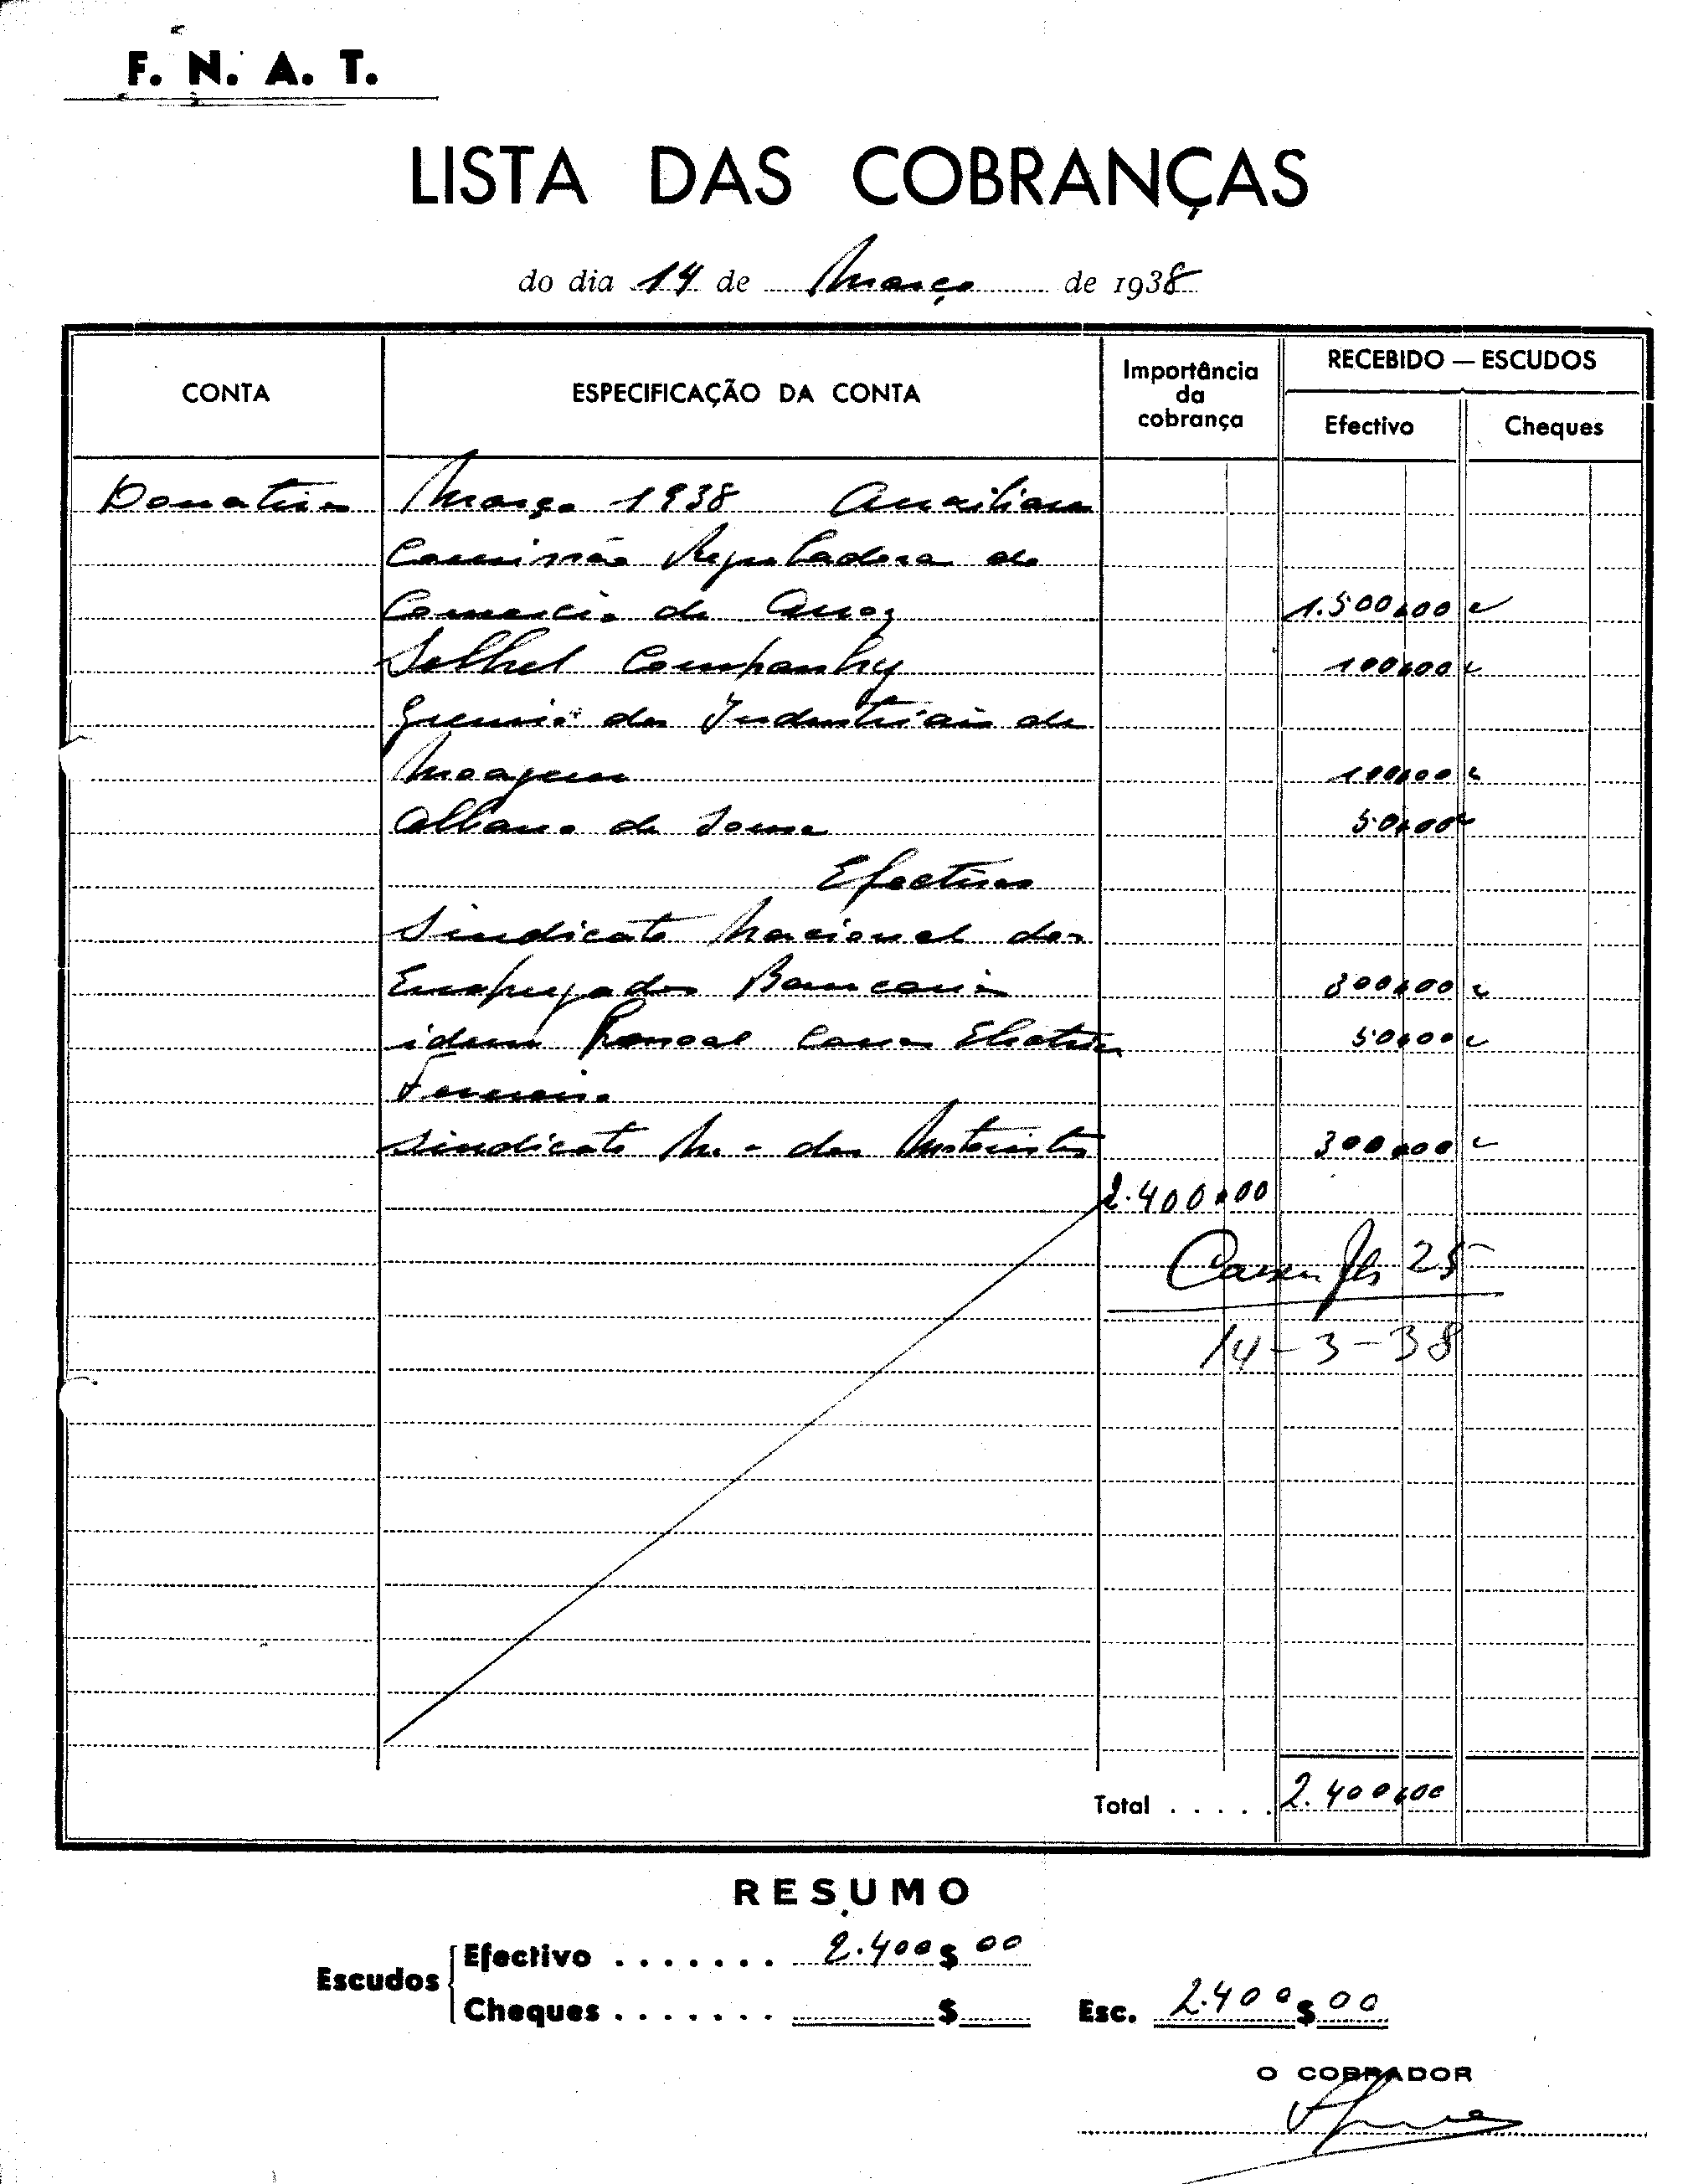 F. N. A. T.
LISTA DAS COBRANÇAS
do dia 14 de Março de 1938
CONTA
ESPECIFICAÇÃO DA CONTA
Importância
da
cobrança
RECEBIDO — ESCUDOS
Efectivo
Cheques
Donativos Março 1938 Auxiliares
Comissão Reguladora do
Comercio de Arroz 1.500$00
Company 100$00
Gremio dos Industriais de
Moagem 100$00
Albano de Sousa 50$00
Efectivos
Sindicato Nacional dos
Empregados Bancarios 300$00
idem Pessoal Carros Electricos 50$00
Sindicato N. dos Motoristas 300$00
2.400$00
Caixa fls 25
14-3-38
Total . . . . . 2.400$00
RESUMO
Escudos
Efectivo . . . . . . . 2.400$00
Cheques . . . . . . . $
Esc. 2.400$00
O COBRADOR